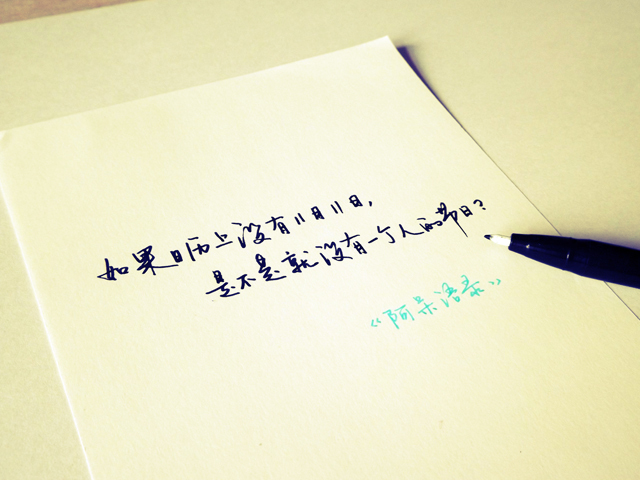 如果日历上没有11月11日,
是不是就没有一个人的节日?
《阿呆语录》